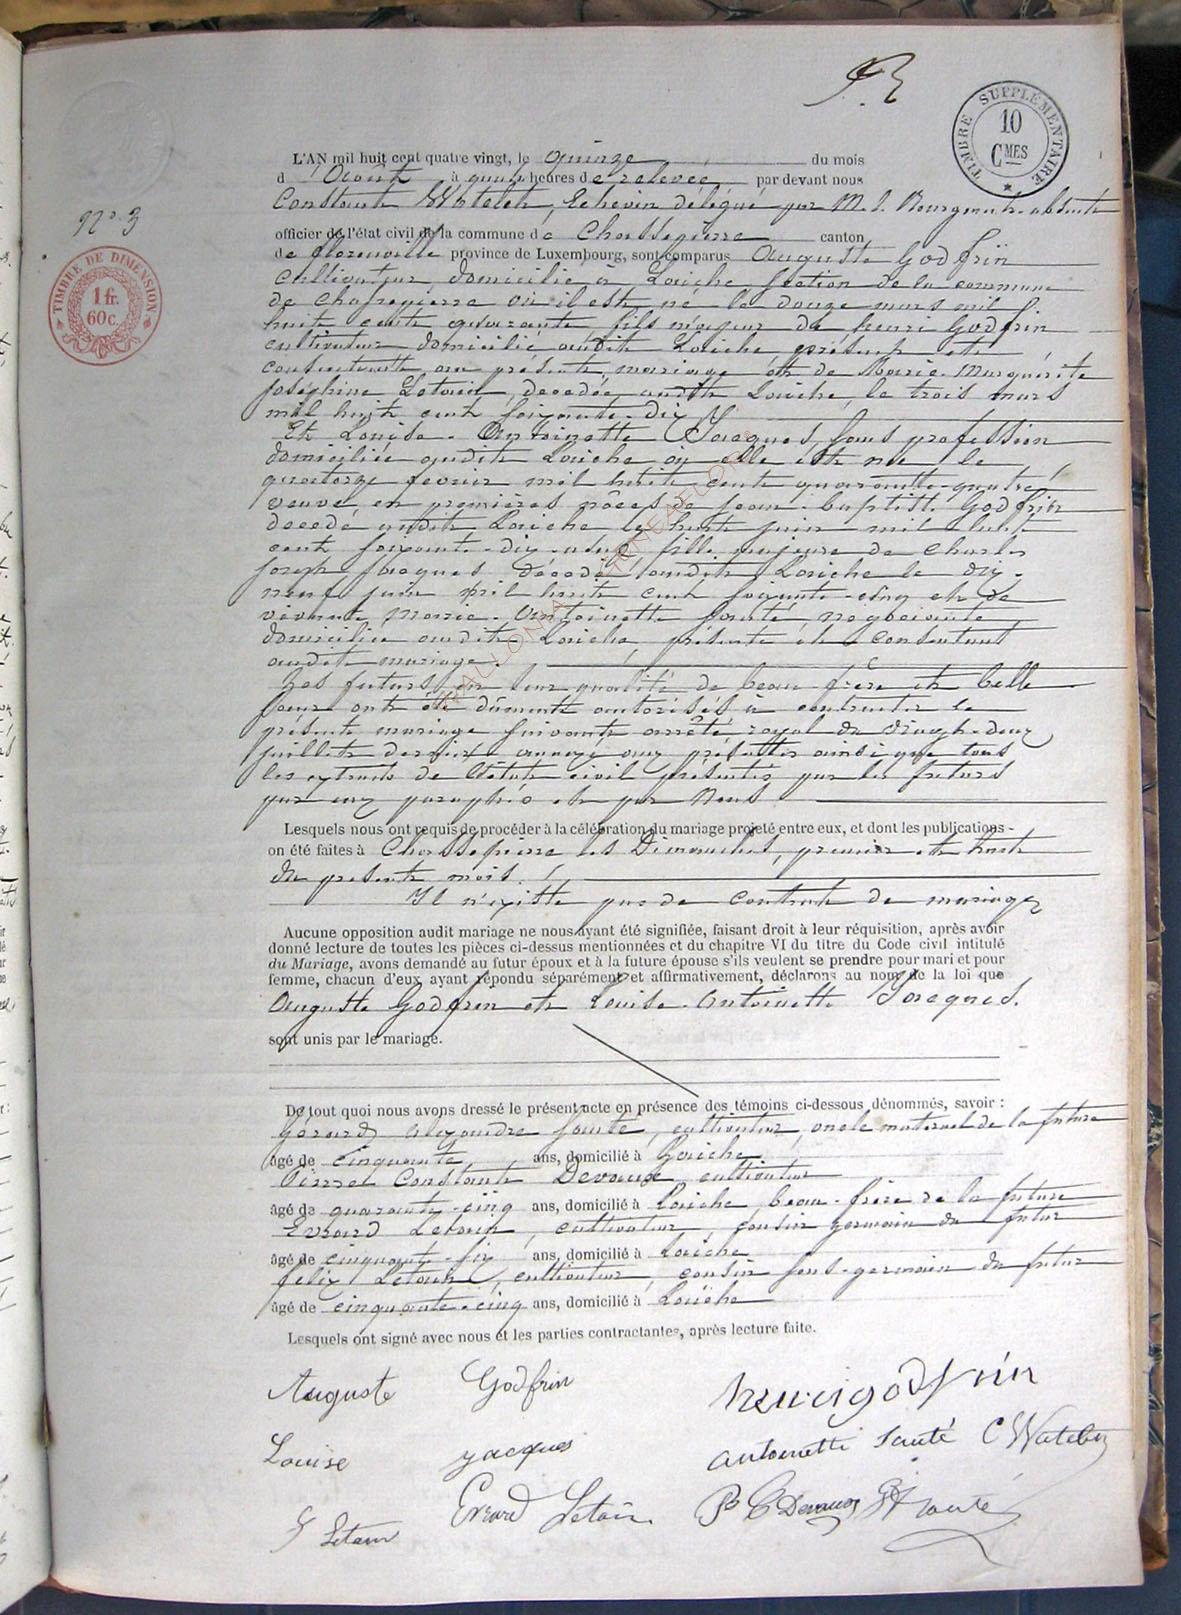 TIMBRE SUPPLÉMENTAIRE
10
CMES
L'AN mil huit cent quatre vingt, le quinze du mois
d'Août à quatre heures de relevée par devant nous
Constant Watelet, Echevin délégué par M. l. Bourgmestre absent
N° 3
officier de l'état civil de la commune de Chassepierre canton
de florenville province de Luxembourg, sont comparus Auguste Godfrin
TIMBRE DE DIMENSION
1 fr.
60c.
cultivateur domicilié à Laiche section de la commune
de Chassepierre où il est né le douze mars mil
huit cent quarante, fils majeur de henri Godfrin
cultivateur domicilié audit Laiche présent et
consentant au présent mariage et de Marie Marguerite
Joséphine Letoin, décédée audit Laiche, le trois mars
mil huit cent soixante-dix
Et Louise-Antoinette Jacques, sans profession
domiciliée audit Laiche où elle est née le
quatorze fevrier mil huit cent quarante-quatre,
veuve en premières nôces de jean-baptiste Godfrin
décédé audit Laiche le huit juin mil huit
cent soixante-dix- fille majeure de Charles
joseph jacques décédé audit Laiche le dix-
neuf juin mil huit cent soixante-cinq et de
vivante Marie-Antoinette Santé négociante
domiciliée audit Laiche, présente et consentant
audit mariage.
Les futurs en leur qualité de beau-frère et belle
soeur ont été dument autorisés à contracter le
présent mariage suivant arrêté royal du vingt-deux
juillet dernier annexé aux présentes ainsi que tous
les extraits de l'état civil présentés par les futurs
par eux paraphés et par Nous
Lesquels nous ont requis de procéder à la célébration du mariage projeté entre eux, et dont les publications
on été faites à Chassepierre les Dimanches, premier et huit
du present mois.
Il n'existe pas de contrat de mariage
Aucune opposition audit mariage ne nous ayant été signifiée, faisant droit à leur réquisition, après avoir
donné lecture de toutes les pièces ci-dessus mentionnées et du chapitre VI du titre du Code civil intitulé
du Mariage, avons demandé au futur époux et à la future épouse s'ils veulent se prendre pour mari et pour
femme, chacun d'eux ayant répondu séparément et affirmativement, déclarons au nom de la loi que
Auguste Godfrin et Louise-Antoinette Jacques.
sont unis par le mariage.
De tout quoi nous avons dressé le présent acte en présence des témoins ci-dessous dénommés, savoir :
Gérard Alexandre Santé, cultivateur, oncle maternel de la future
âgé de cinquante ans, domicilié à Laiche
Pierre Constant Devaux, cultivateur
âgé de quarante-cinq ans, domicilié à Laiche, beau-frère de la future
Evrard Letoin, cultivateur, cousin germain du futur
âgé de cinquante-six ans, domicilié à Laiche
felix Letoin, cultivateur, cousin sous-germain du futur
âgé de cinquante-cinq ans, domicilié à Laiche
Lesquels ont signé avec nous et les parties contractantes, après lecture faite.
Auguste Godfrin henri godfrin
Louise jacques antoinette Santé C Watelet
F Letoin Evrard Letoin P C Devaux G A Santé